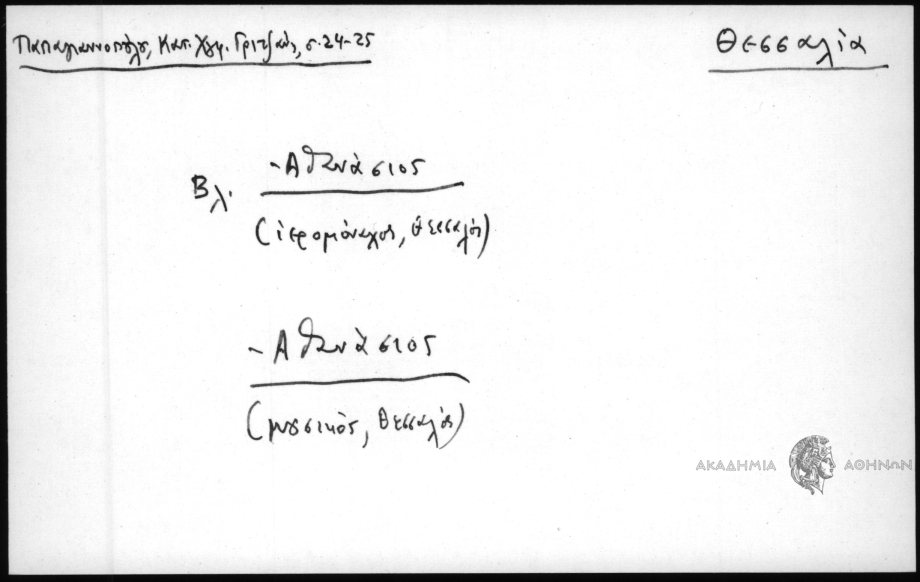 Παπαγιαννοπούλου, Κατ. Χφφ. Γριτζαν, σ. 24-25
Θεσσαλία
- Ἀθανάσιος
Βλ.
(ἱερομόναχος, Θεσσαλός)
- Ἀθανάσιος
(μουσικός, Θεσσαλός)
ΑΚΑΔΗΜΙΑ ΑΘΗΝΩΝ